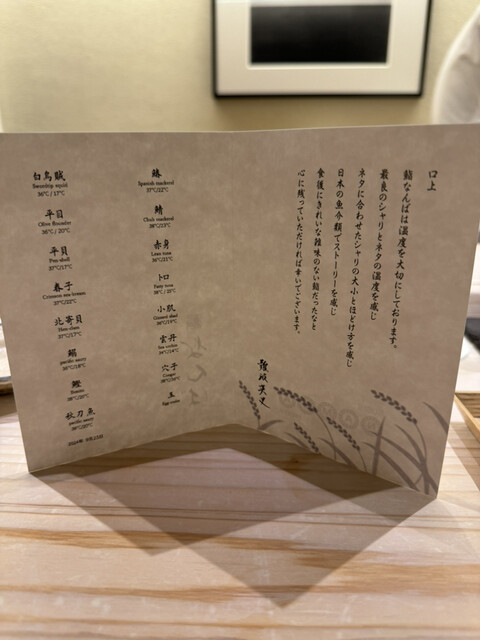 白烏賊
Swordtip squid
36℃ / 17℃
平目
Olive flounder
36℃ / 20℃
平貝
Pen shell
37℃/17℃
春子
Crimson sea-bream
37℃/22℃
北寄貝
Hen-clam
37℃/17℃
鰯
36℃/18℃
鰹
Bonito
38℃/20℃
秋刀魚
pacific saury
38℃/20℃
鰆
Spanish mackerel
37℃/22℃
鯖
Chub mackerel
38℃/13℃
赤身
Lean tuna
36℃/21℃
トロ
Fatty tuna
38℃ / 25℃
小肌
Gizzard shad
36℃/14℃
雲丹
Sea urchin
34℃/14℃
穴子
Conger
38℃/50℃
玉
Egg custar
口上
鮨なんばは温度を大切にしております。
最良のシャリとネタの温度を感じ
ネタに合わせたシャリの大小とほどけ方を感じ
日本の魚介類でストーリーを感じ
食後にきれいな雑味のない鮨だったなと
心に残っていただければ幸いでございます。
難波英史